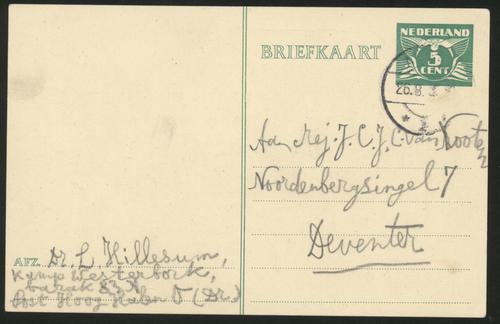 NEDERLAND
5
CENT
BRIEFKAART
26.8.
Aan Mej. J. C. J. C. van Kooten
Noordenbergsingel 7
Deventer
AFZ. Dr. L. Hillesum,
Kamp Westerbork,
barak 83
Post Hoog Halen O (Dr.)